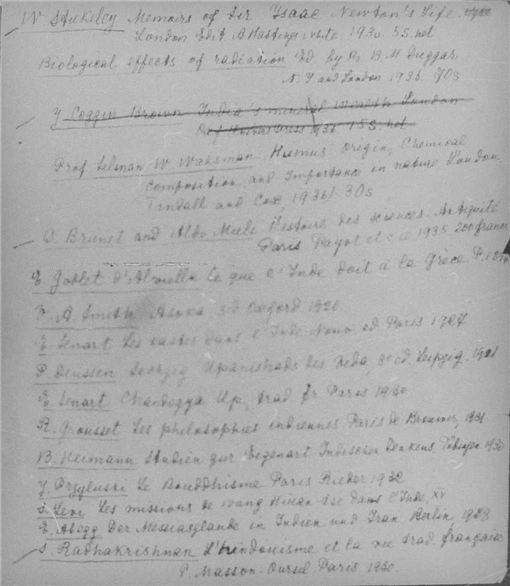 W Stukeley Memoirs of Sir Isaac Newton's Life.
London Edit A Hastings White 1936 5s. net
Biological effects of radiation Ed by Dr B M Duggar
N. Y and London 1936. 70s
J Coggin Brown India's mineral Wealth London
Oxf Univer Press 1936 15s. net
Prof Selman W Waksman. Humus origin, Chemical
Composition, and Importance in nature London
Tindall and Cox, 1936/ 30s
P. Brunet and Aldo Mieli Histoire des sciences. Antiquité
Paris Payot et cie 1935 200 francs
E. Goblet d'Alviella Ce que l'Inde doit à la Grèce P.
V. A Smith Asoka 3 ed Oxford 1920
E. Senart Les castes dans l'Inde Nouv ed Paris 1927
P. Deussen Sechzig Upanishads des Veda, 3e ed Leipzig. 1921
E. Senart Chandogya Up, trad fr Paris 1930
R. Grousset Les philosophies indiennes Paris de Brouwer, 1931
B. Heimann Studien zur Eigenart Indischen Denkens Tübingen 1930
J. Przyluski Le Bouddhisme Paris Rieder 1932
S. Levi Les missions de Wang Hiuan tse dans l'Inde, XV
E. Abegg Der Messiasglaube in Indien und Iran Berlin, 1928
S. Radhakrishnan L'hindouisme et la vie trad française
P. Masson-Oursel Paris 1930